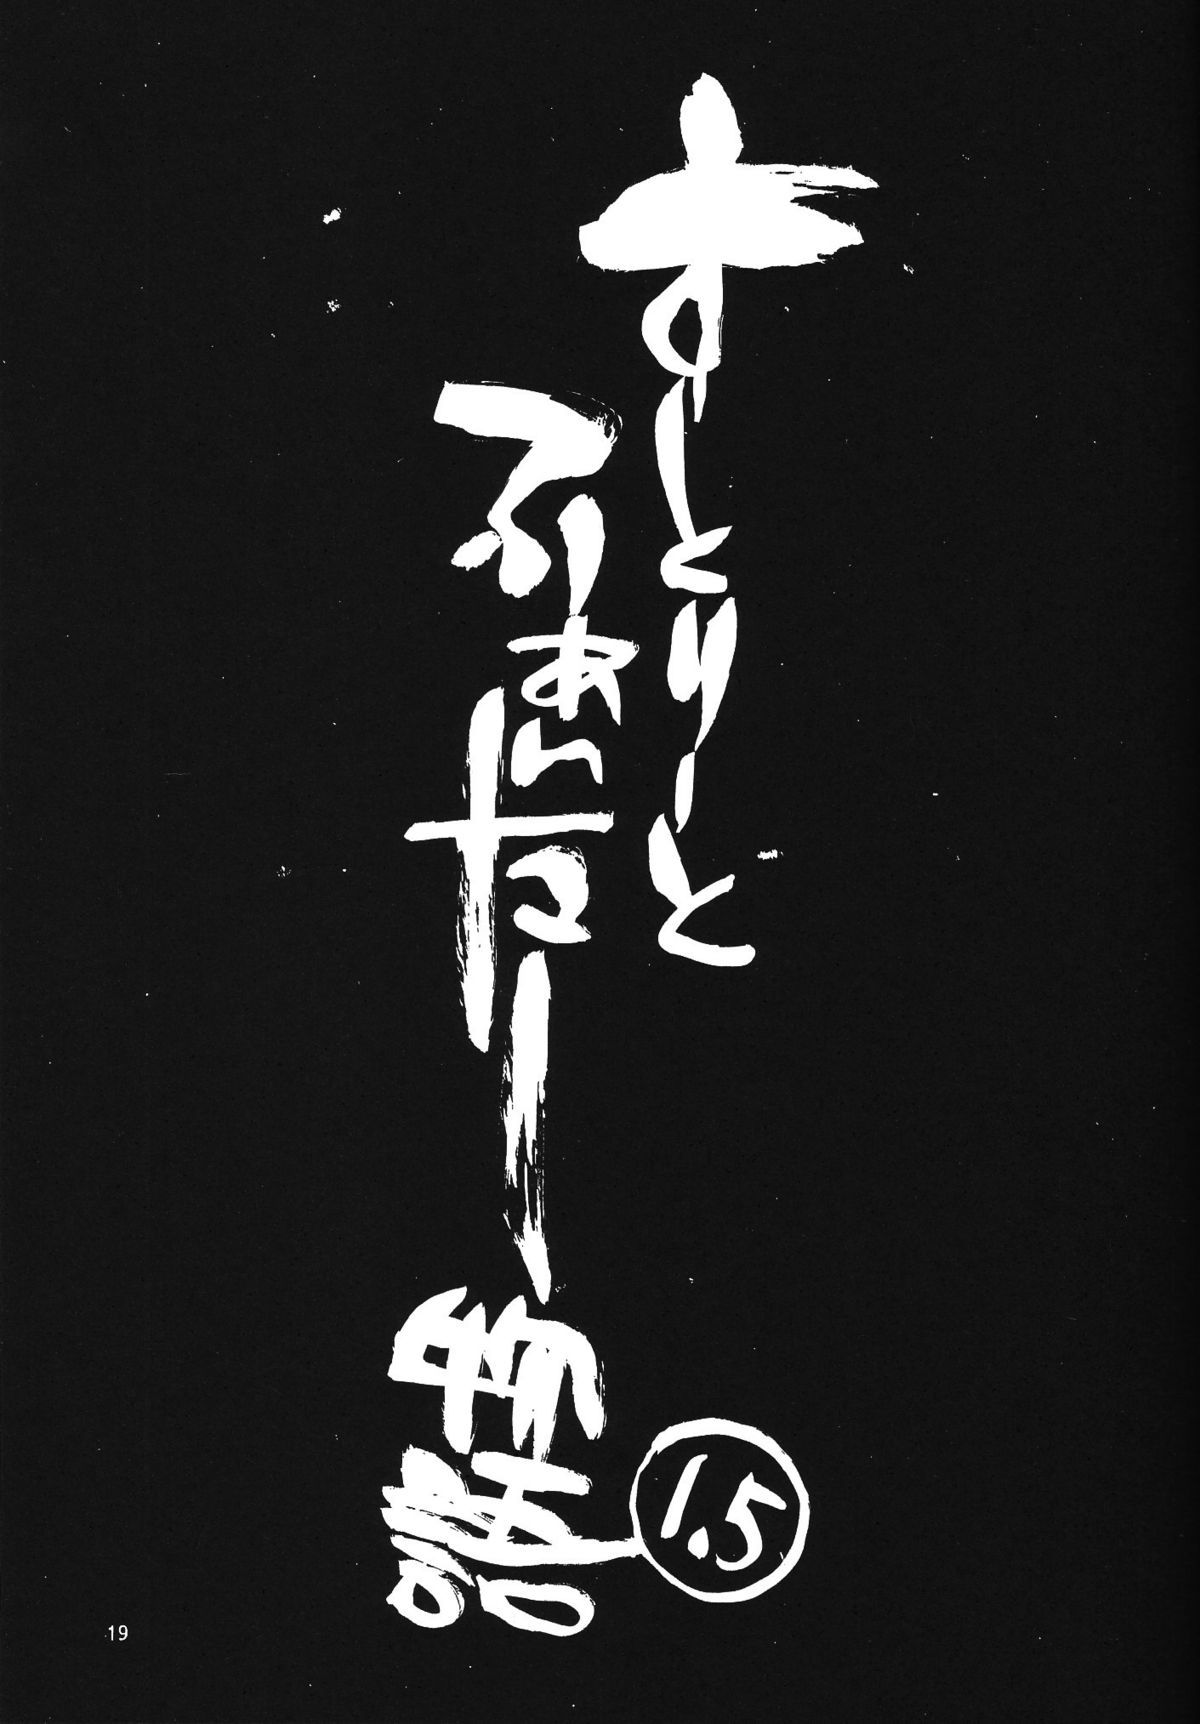 すとりーと
ふぁいたー物語
1.5
19